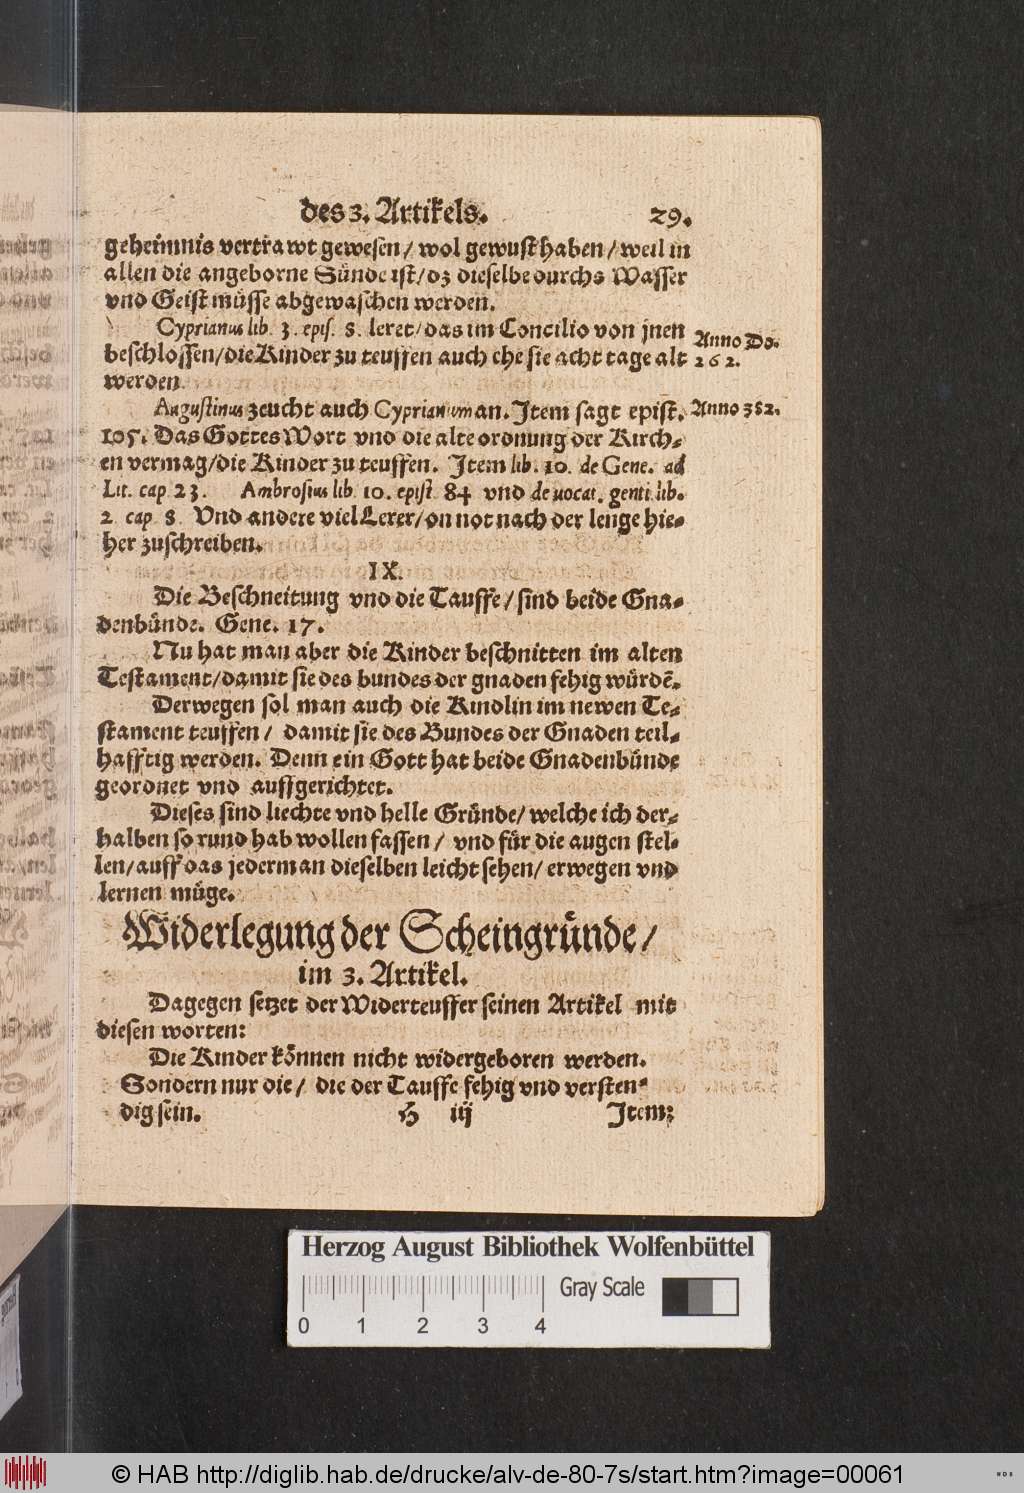 des 3. Artikels. 29.
geheimnis vertrawt gewesen / wol gewust haben / weil in
allen die angeborne Sünde ist / dz dieselbe durchs Wasser
vnd Geist müsse abgewaschen werden.
Cyprianus lib. 3. epis. 8. leret / das im Concilio von jnen
Anno Do.
beschlossen / die Kinder zu teuffen auch ehe sie acht tage alt
262.
werden.
Augustinus zeucht auch Cyprianum an. Item sagt epist.
Anno 382.
105. Das Gottes Wort vnd die alte ordnung der Kirch-
en vermag / die Kinder zu teuffen. Item lib. 10. de Gene. ad
Lit. cap. 23. Ambrosius lib. 10. epist. 84 vnd de uocat. genti. lib.
2. cap. 8. Vnd andere viel Lerer / on not nach der lenge hie-
her zuschreiben.
IX.
Die Beschneitung vnd die Tauffe / sind beide Gna-
denbünde. Gene. 17.
Nu hat man aber die Kinder beschnitten im alten
Testament / damit sie des bundes der gnaden fehig würdẽ.
Derwegen sol man auch die Kindlin im newen Te-
stament teuffen / damit sie des Bundes der Gnaden teil-
hafftig werden. Denn ein Gott hat beide Gnadenbünde
geordnet vnd auffgerichtet.
Dieses sind liechte vnd helle Gründe / welche ich der-
halben so rund hab wollen fassen / vnd für die augen stel-
len / auff das jederman dieselben leicht sehen / erwegen vnd
lernen müge.
Widerlegung der Scheingründe /
im 3. Artikel.
Dagegen setzet der Widerteuffer seinen Artikel mit
diesen worten:
Die Kinder können nicht widergeboren werden.
Sondern nur die / die der Tauffe fehig vnd versten-
dig sein.
H iij Item:
Herzog August Bibliothek Wolfenbüttel
Gray Scale
0 1 2 3 4
© HAB http://diglib.hab.de/drucke/alv-de-80-7s/start.htm?image=00061